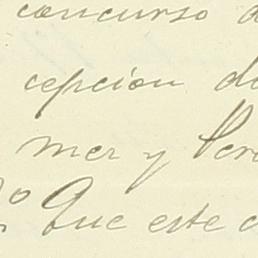 concurso d
cepción de
mer y Per
o Que este c